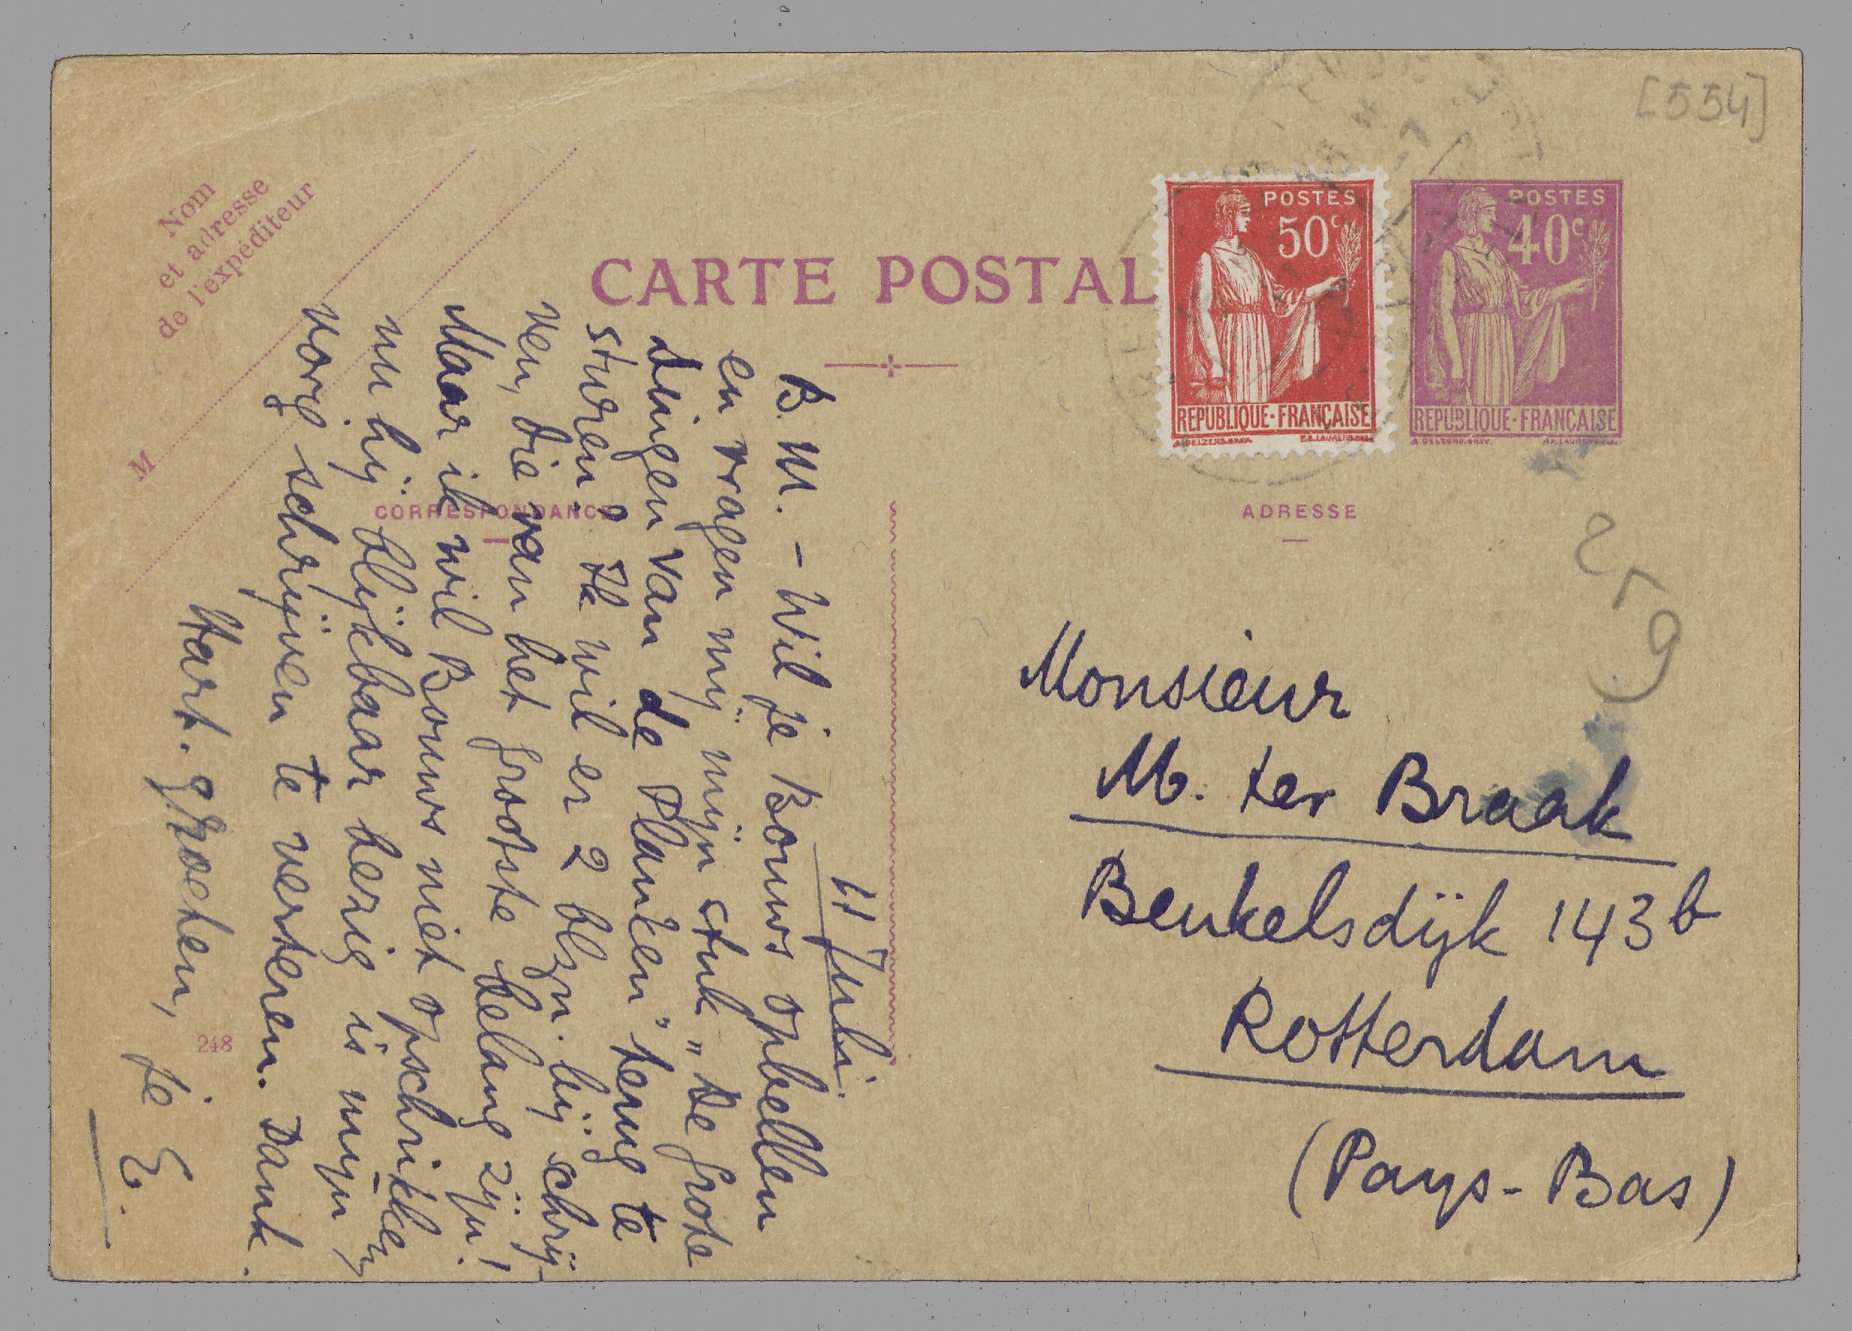 [554]
Nom
et adresse
de l'expéditeur
M
CARTE POSTAL
POSTES
50c
REPUBLIQUE·FRANÇAISE
POSTES
40c
REPUBLIQUE·FRANÇAISE
CORRESPONDANCE
ADRESSE
259
11 Juli.
B. M. - Wil je Bouws opbellen
en vragen mij mijn stuk „De Grote
dingen van de Planken" terug te
sturen? Ik wil er 2 blzn. bij schrij-
ven, die van het grootste belang zijn!
Maar ik wil Bouws niet opschrikken,
nu hij blijkbaar bezig is mijn
vorig schrijven te verteren. Dank.
Hart. groeten, je E.
248
Monsieur
M. ter Braak
Beukelsdijk 143b
Rotterdam
(Pays-Bas)